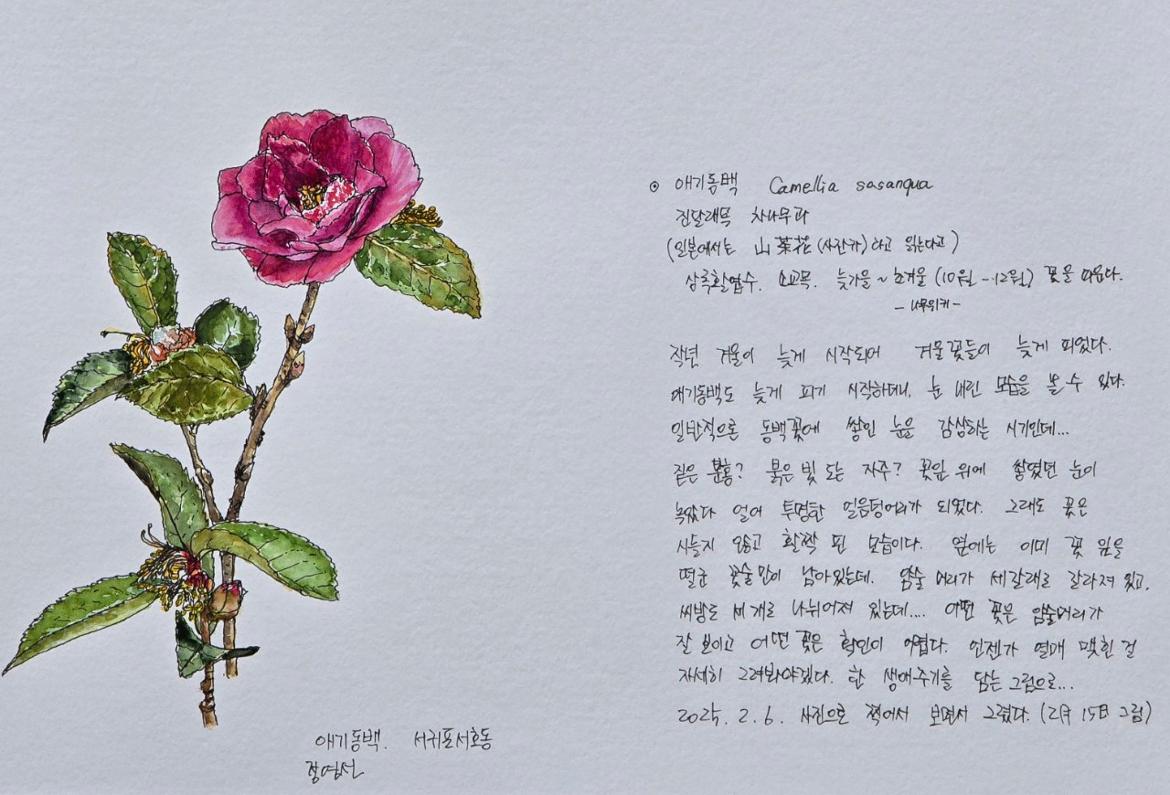 ⊙ 애기동백 Camellia sasanqua
진달래목 차나무과
(일본에서는 山茶花(사잔카)라고 읽는다고)
상록활엽수. 소교목. 늦가을~초겨울(10월-12월) 꽃을 피운다.
-나무위키-
작년 겨울이 늦게 시작되어 겨울꽃들이 늦게 피었다.
애기동백도 늦게 피기 시작하더니, 눈 내린 모습을 볼 수 있다.
일반적으론 동백꽃에 쌓인 눈을 감상하는 시기인데...
짙은 분홍? 붉은 빛 도는 자주? 꽃잎 위에 쌓였던 눈이
녹았다 얼어 투명한 얼음덩어리가 되었다. 그래도 꽃은
시들지 않고 활짝 핀 모습이다. 옆에는 이미 꽃 잎을
떨군 꽃술만이 남아있는데. 암술 머리가 세갈래로 갈라져 있고,
씨방도 세개로 나뉘어져 있는데.... 어떤 꽃은 암술머리가
잘 보이고 어떤 꽃은 확인이 어렵다. 언젠가 열매 맺힌 걸
자세히 그려봐야겠다. 한 생애주기를 담는 그림으로...
2025. 2. 6. 사진으로 찍어서 보면서 그렸다. (2月 15日 그림)
애기동백. 서귀포서호동
정영선